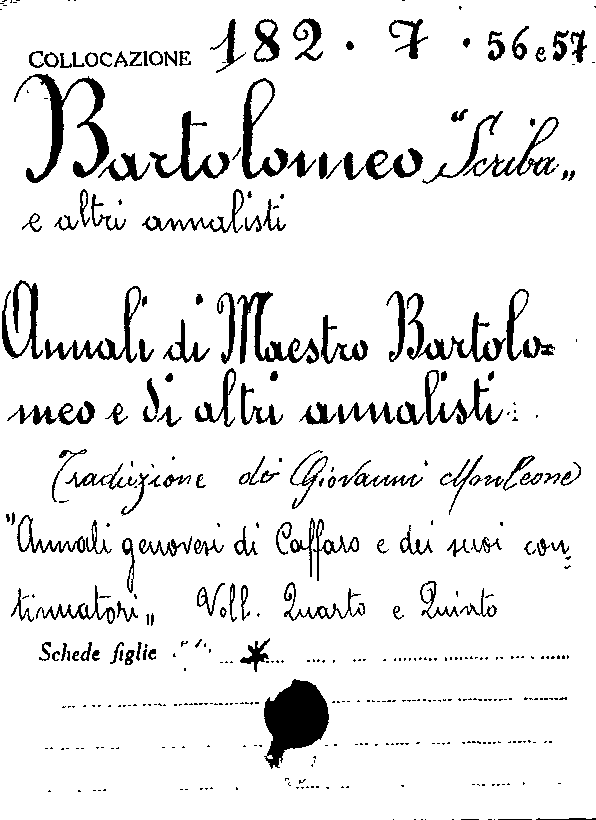 COLLOCAZIONE 182 · 7 · 56 e 57
Bartolomeo "Scriba„
e altri annalisti
Annali di Maestro Bartolo=
meo e di altri annalisti.
Traduzione di Giovanni Monleone
"Annali genovesi di Caffaro e dei suoi con=
tinuatori„ Voll. Quarto e Quinto
Schede figlie